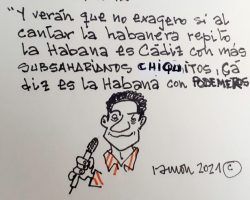 "Y verán que no exagero si al
cantar la habanera repito
la Habana es Cádiz con más
SUBSAHARIANOS CHIQUITOS, Cá
diz es la Habana con PODEMITOS
ramón 2021 ©